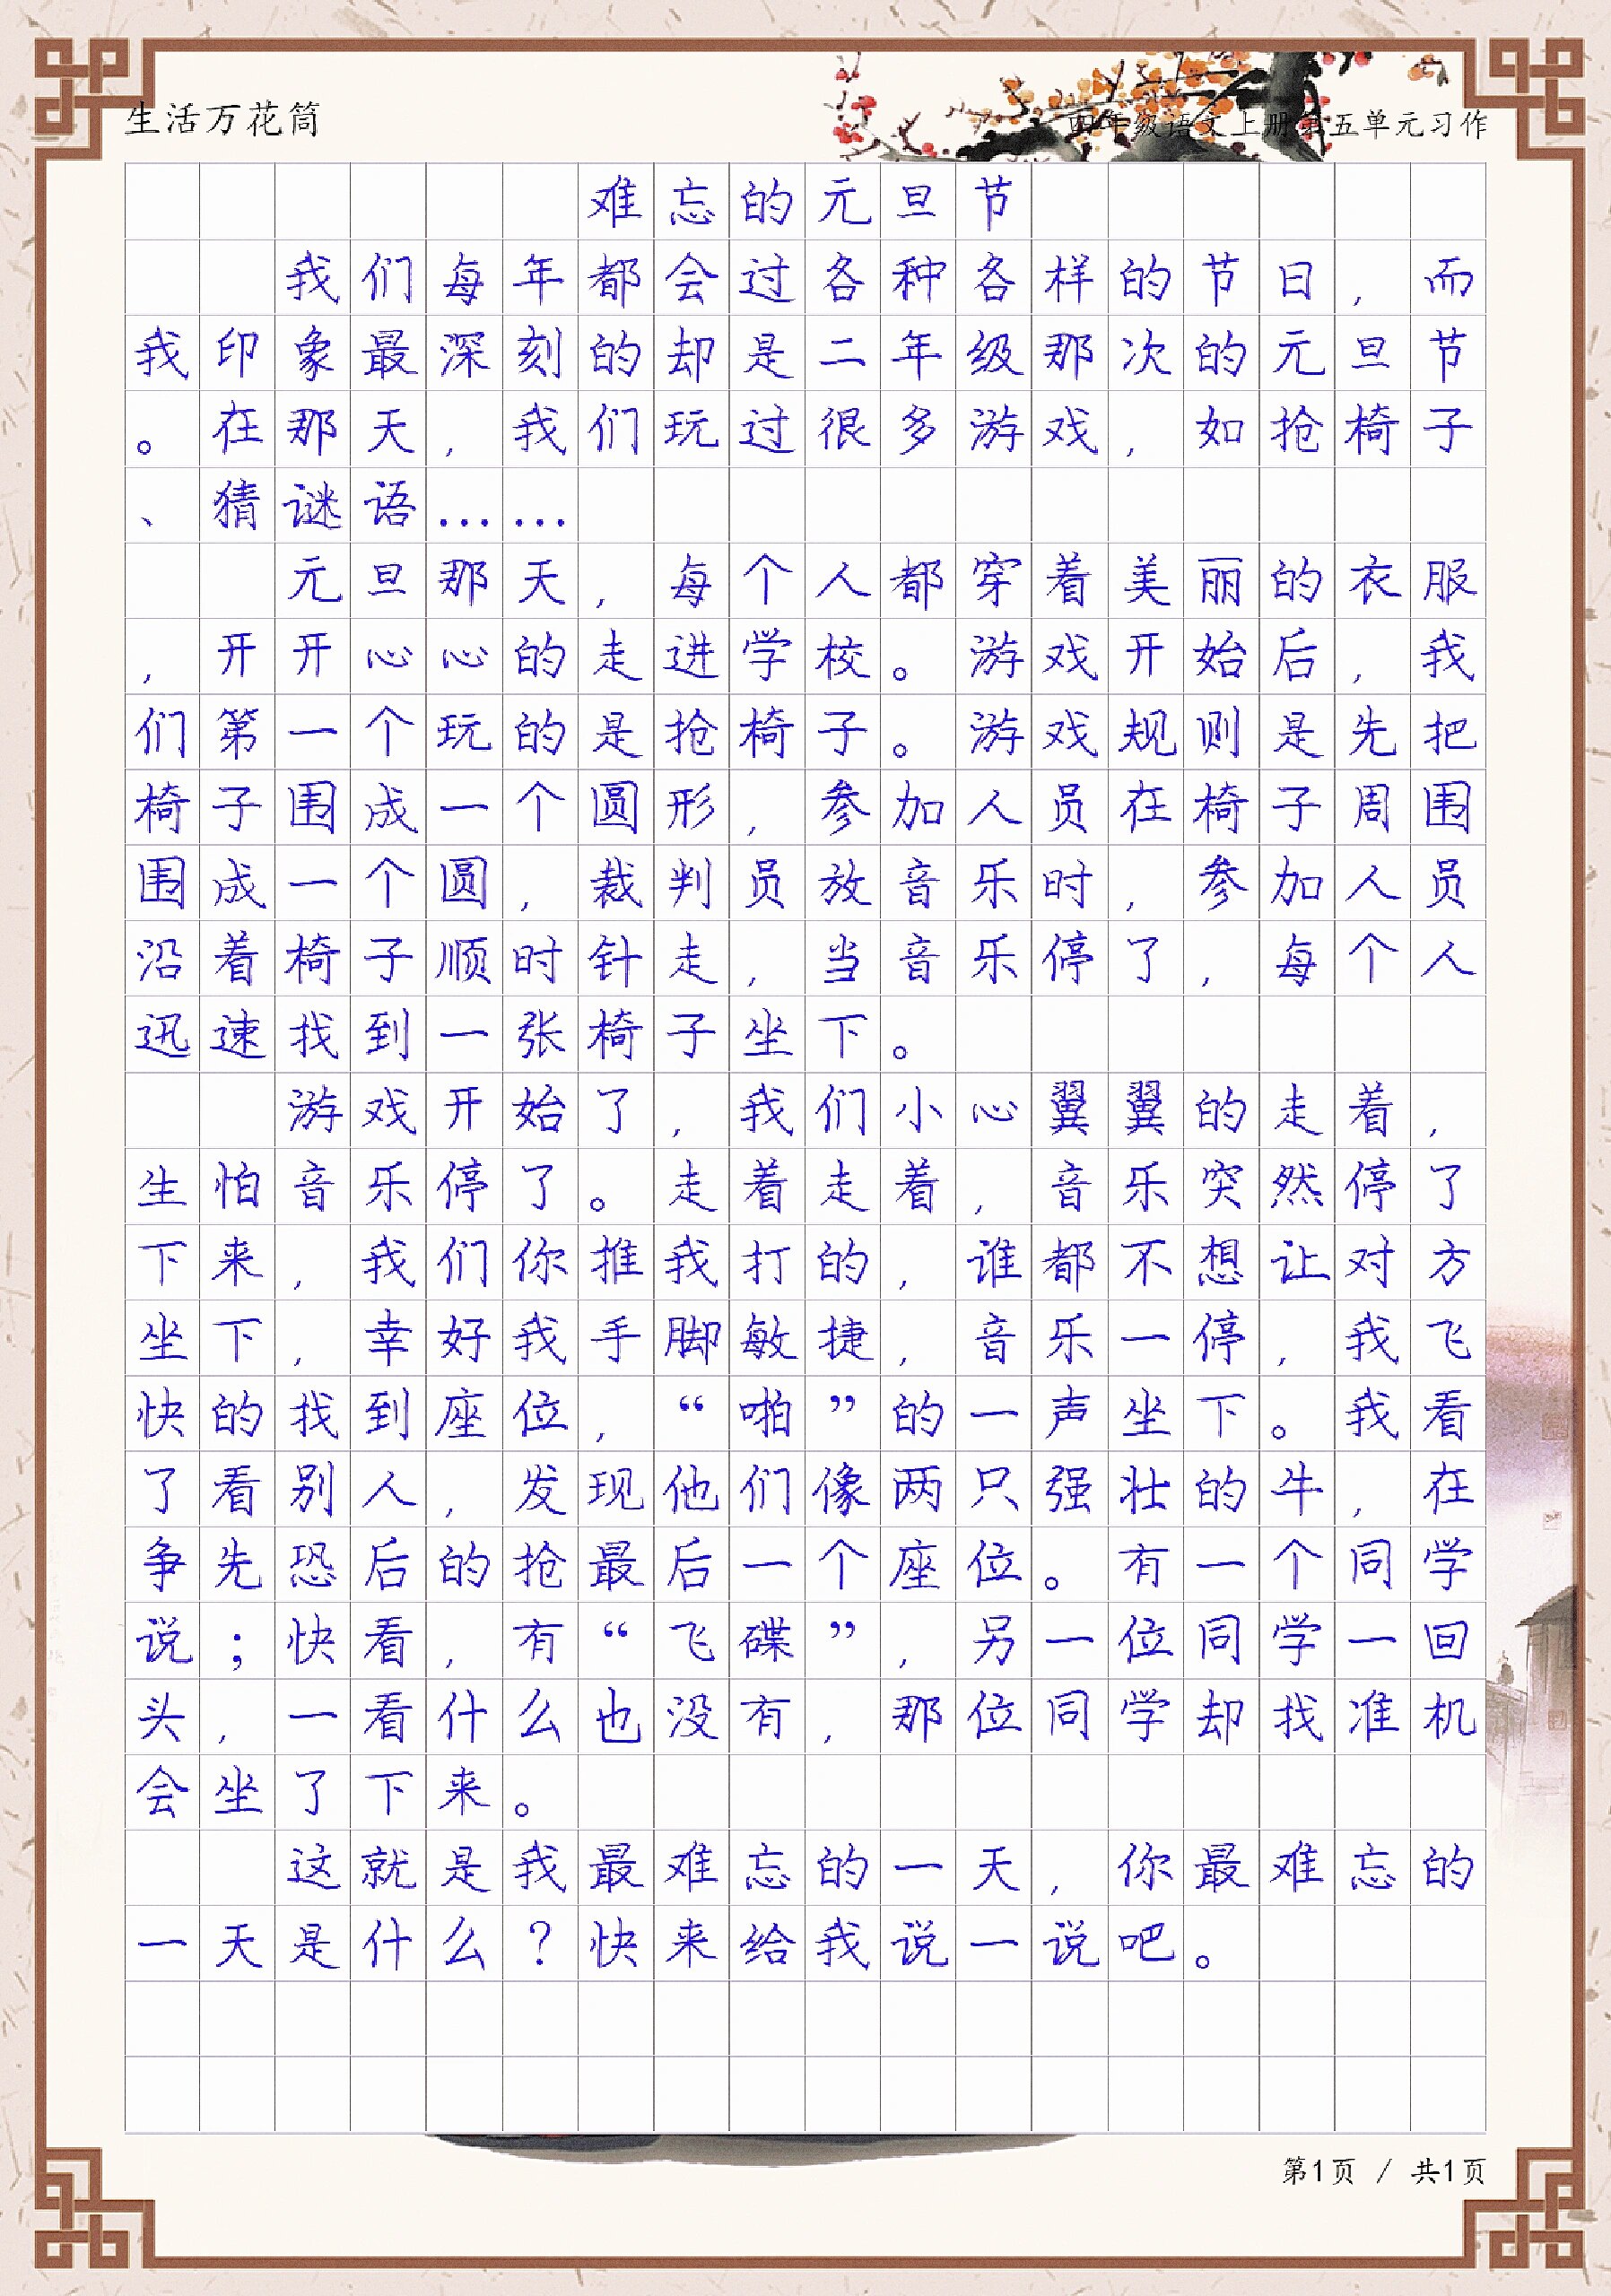 生活万花筒
四年级语文上册第五单元习作
难忘的元旦节
我们每年都会过各种各样的节日，而
我印象最深刻的却是二年级那次的元旦节
。在那天，我们玩过很多游戏，如抢椅子
、猜谜语……
元旦那天，每个人都穿着美丽的衣服
，开开心心的走进学校。游戏开始后，我
们第一个玩的是抢椅子。游戏规则是先把
椅子围成一个圆形，参加人员在椅子周围
围成一个圆，裁判员放音乐时，参加人员
沿着椅子顺时针走，当音乐停了，每个人
迅速找到一张椅子坐下。
游戏开始了，我们小心翼翼的走着，
生怕音乐停了。走着走着，音乐突然停了
下来，我们你推我打的，谁都不想让对方
坐下，幸好我手脚敏捷，音乐一停，我飞
快的找到座位，“啪”的一声坐下。我看
了看别人，发现他们像两只强壮的牛，在
争先恐后的抢最后一个座位。有一个同学
说；快看，有“飞碟”，另一位同学一回
头，一看什么也没有，那位同学却找准机
会坐了下来。
这就是我最难忘的一天，你最难忘的
一天是什么？快来给我说一说吧。
第1页 / 共1页